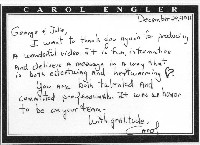 CAROL ENGLER
December 20, 1991
George & Julie,
I want to thank you again for producing
a wonderful video. It is fun, informative
and delivers a message in a way that
is both entertaining and heartwarming
You are both talented and
committed professionals. It was an honor
to be on your team.
With gratitude,
Carol